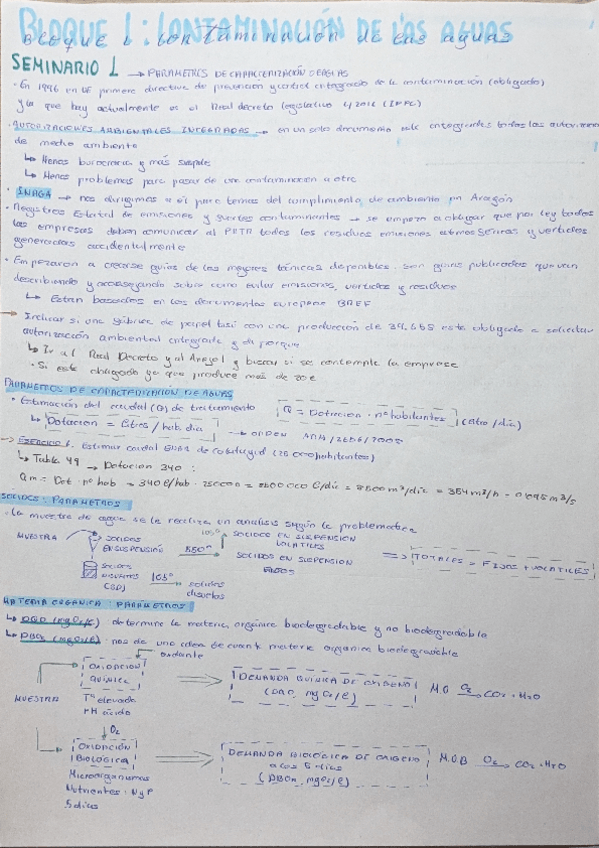 BLOQUE 1: CONTAMINACIÓN DE LAS AGUAS
SEMINARIO 1 → PARAMETROS DE CARACTERIZACIÓN DE AGUAS
· En 1996 en UE primera directiva de prevención y control integrado de la contaminación (obligado)
y la que hay actualmente es el Real decreto legislativo 1/2016 (IPPC)
· AUTORIZACIONES AMBIENTALES INTEGRADAS → en un solo documento integradas todas las
de medio ambiente
↳ Menos burocracia y más simple
↳ Menos problemas para pasar de una contaminación a otra
· INAGA → nos dirigimos a él para temas del cumplimiento de ambiente en Aragón
· Registros Estatal de emisiones y fuentes contaminantes → se empezo a obligar que por ley todas
las empresas deben comunicar al PRTR todos los residuos emisiones atmosféricas y vertidos
generados accidentalmente
· Empezaron a crearse guías de las mejores técnicas disponibles. Son guías publicadas que van
describiendo y aconsejando sobre como evitar emisiones, vertidos y residuos
↳ Estan basados en los documentos europeos BREF
→ Indicar si una fábrica de papel con una producción de está obligada a solicitar
autorización ambiental integrada y di porque
↳ Ir al Real Decreto y al Anejo 1 y buscar si se contempla la empresa
· Si esta obligada ya que produce más de 20 t
PARAMETROS DE CARACTERIZACION DE AGUAS
· Estimación del caudal (Q) de tratamiento Q = Dotacion · nº habitantes (litro/día)
↳ Dotacion = litros/hab. dia → ORDEN
→ EJERCICIO 1. Estimar caudal EDAR de Calatayud (25000 habitantes)
↳ Tabla 49 → Dotacion 340:
Qm = Dot · nº hab → 340 ℓ/hab · 25000 = 8500000 ℓ/día = 8500 m³/día = 354 m³/h = 0'098 m³/s
SOLIDOS: PARAMETROS
· La muestra de agua se le realiza un analisis según la problematica
MUESTRA
SOLIDOS
EN SUSPENSIÓN
550º
105º
SOLIDOS EN SUSPENSION
VOLATILES
SOLIDOS EN SUSPENSION
FIJOS
⇒ TOTALES = FIJOS + VOLATILES
SOLIDOS
DISUELTOS
(SD)
105º
solidos
disueltos
MATERIA ORGANICA: PARAMETROS
↳ DQO (mgO₂/ℓ) determina la materia orgánica biodegradable y no biodegradable
↳ DBO₅ (mgO₂/ℓ) nos da una idea de cuanta materia organica biodegradable
oxidante
OXIDACION
QUIMICA
Tª elevada
PH ácido
DEMANDA QUIMICA DE OXIGENO
(DQO, mg O₂/ℓ)
M.O O₂ → CO₂ + H₂O
MUESTRA
O₂
OXIDACIÓN
BIOLOGICA
Microorganismos
Nutrientes: N y P
5 dias
DEMANDA BIOLOGICA DE OXIGENO
a los 5 dias
(DBO₅, mgO₂/ℓ)
M.O.B O₂ → CO₂ + H₂O